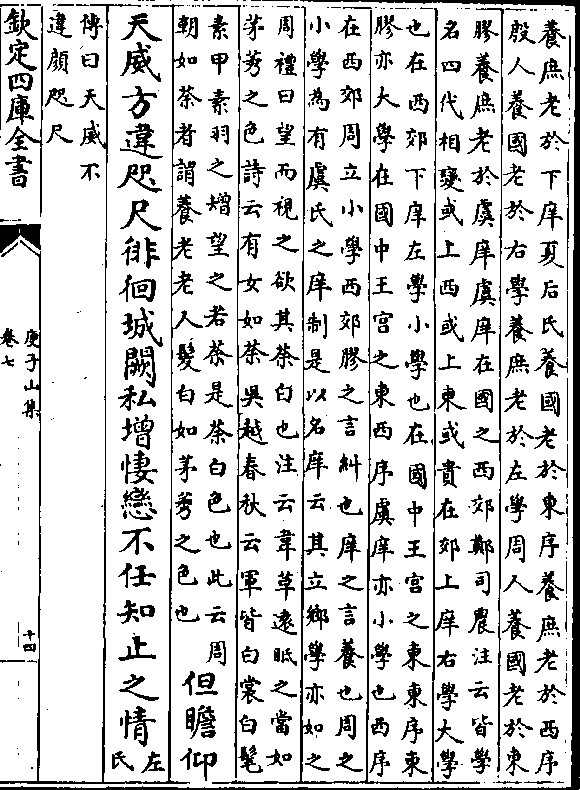 養庶老於下庠夏后氏養國老於東序養庶老於西序
殷人養國老於右學養庶老於左學周人養國老於東
膠養庶老於虞庠虞庠在國之西郊鄭司農注云皆學
名四代相變或上西或上東或貴在郊上庠右學大學
也在西郊下庠左學小學也在國中王宮之東東序東
膠亦大學在國中王宮之東西序虞庠亦小學也西序
在西郊周立小學西郊膠之言糾也庠之言養也周之
小學為有虞氏之庠制是以名庠云其立鄉學亦如之
周禮曰望而視之欲其荼白也注云韋革遠眡之當如
茅莠之色詩云有女如荼吳越春秋云軍皆白裳白髦
素甲素羽之矰望之若荼是荼白色也此云周
朝如荼者謂養老老人髮白如茅莠之色也
但瞻仰
天威方違咫尺徘徊城闕私增悽戀不任知止之情
左氏
傳曰天威不
違顔咫尺
欽定四庫全書
庾子山集
卷七
十四